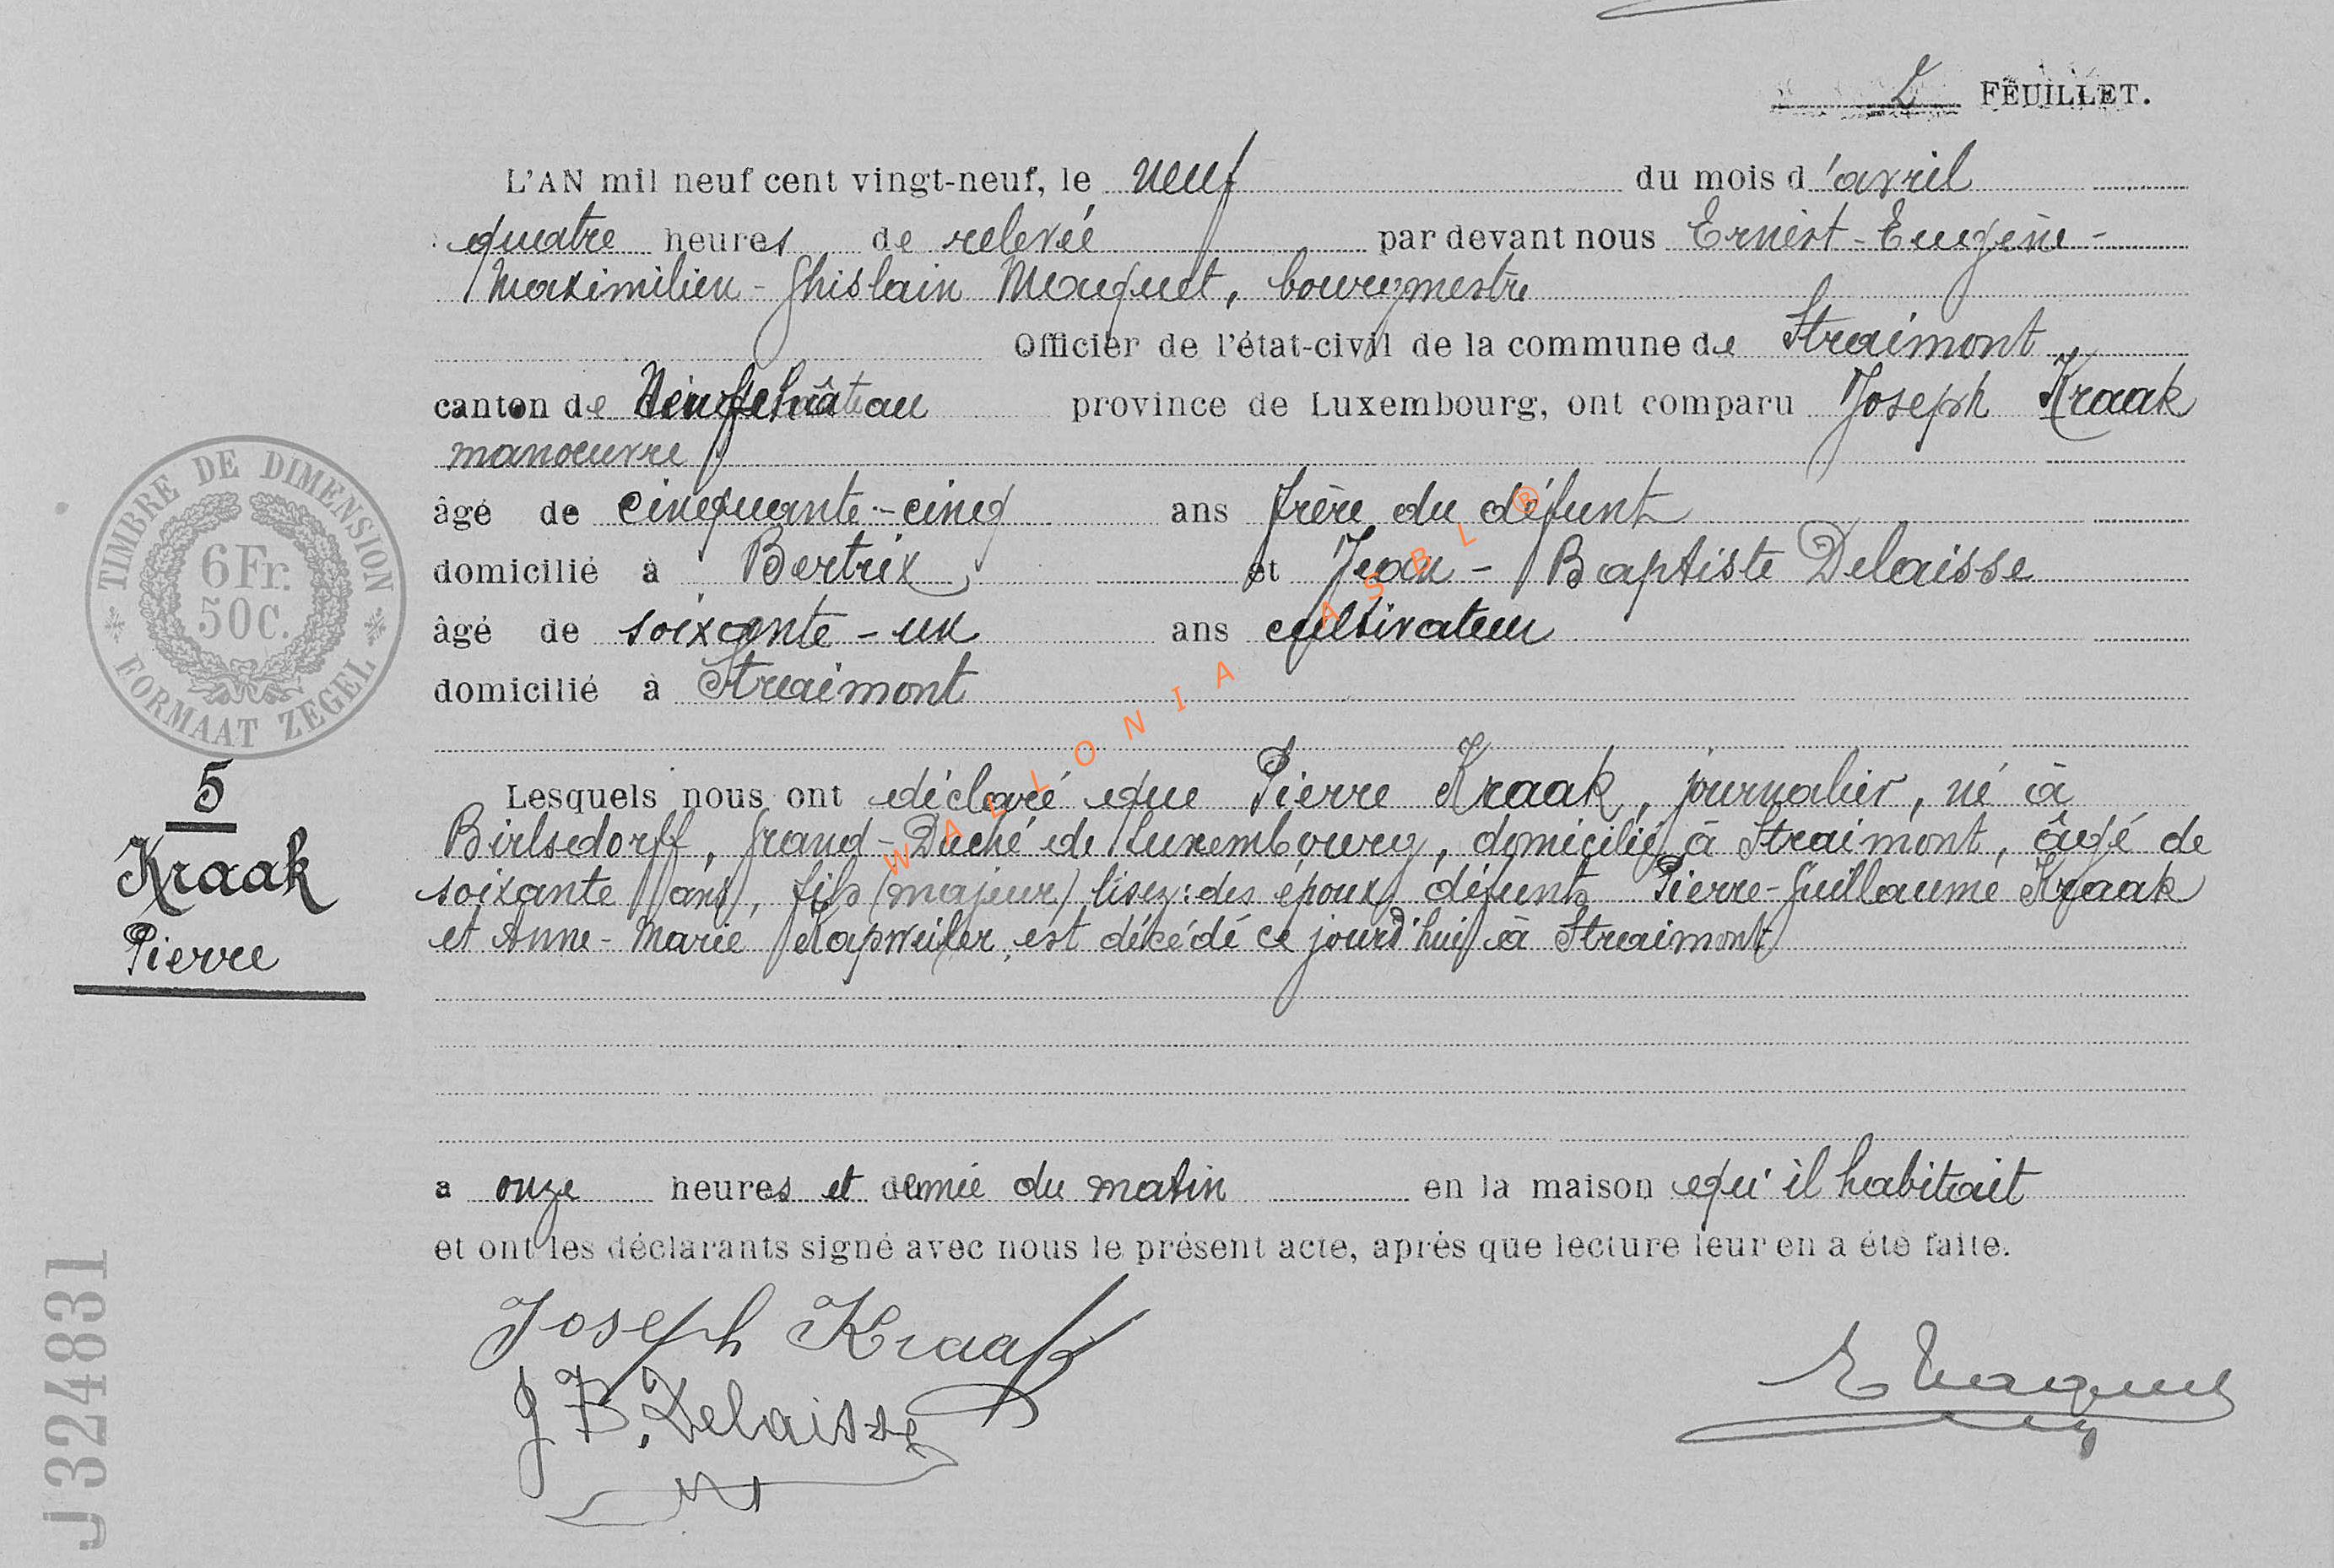 2 FEUILLET.
L'AN mil neuf cent vingt-neuf, le neuf du mois d'avril
quatre heures de relevée par devant nous Ernest-Eugène-
Maximilien-Ghislain Maquet, bourgmestre
Officier de l'état-civil de la commune de Straimont
canton de Neufchâteau province de Luxembourg, ont comparu Joseph Kraak
manoeuvre
âgé de cinquante-cinq ans frère du défunt
domicilié à Bertrix, et Jean-Baptiste Delaisse
âgé de soixante-un ans cultivateur
domicilié à Straimont
TIMBRE DE DIMENSION
6Fr.
50c.
FORMAAT ZEGEL
5
Kraak
Pierre
Lesquels nous ont déclaré que Pierre Kraak, journalier, né à
Birlsedorff, Grand-Duché de Luxembourg, domicilié à Straimont, âgé de
soixante ans, fils (majeur) lisez: des époux défunts Pierre-Guillaume Kraak
et Anne-Marie Kapweiler, est décédé ce jourd'hui à Straimont
a onze heures et demie du matin en la maison qu'il habitait
et ont les déclarants signé avec nous le présent acte, après que lecture leur en a été faite.
Joseph Kraak
J B. Delaisse
E Maquet
J324831
WALLONIA ASBL ®